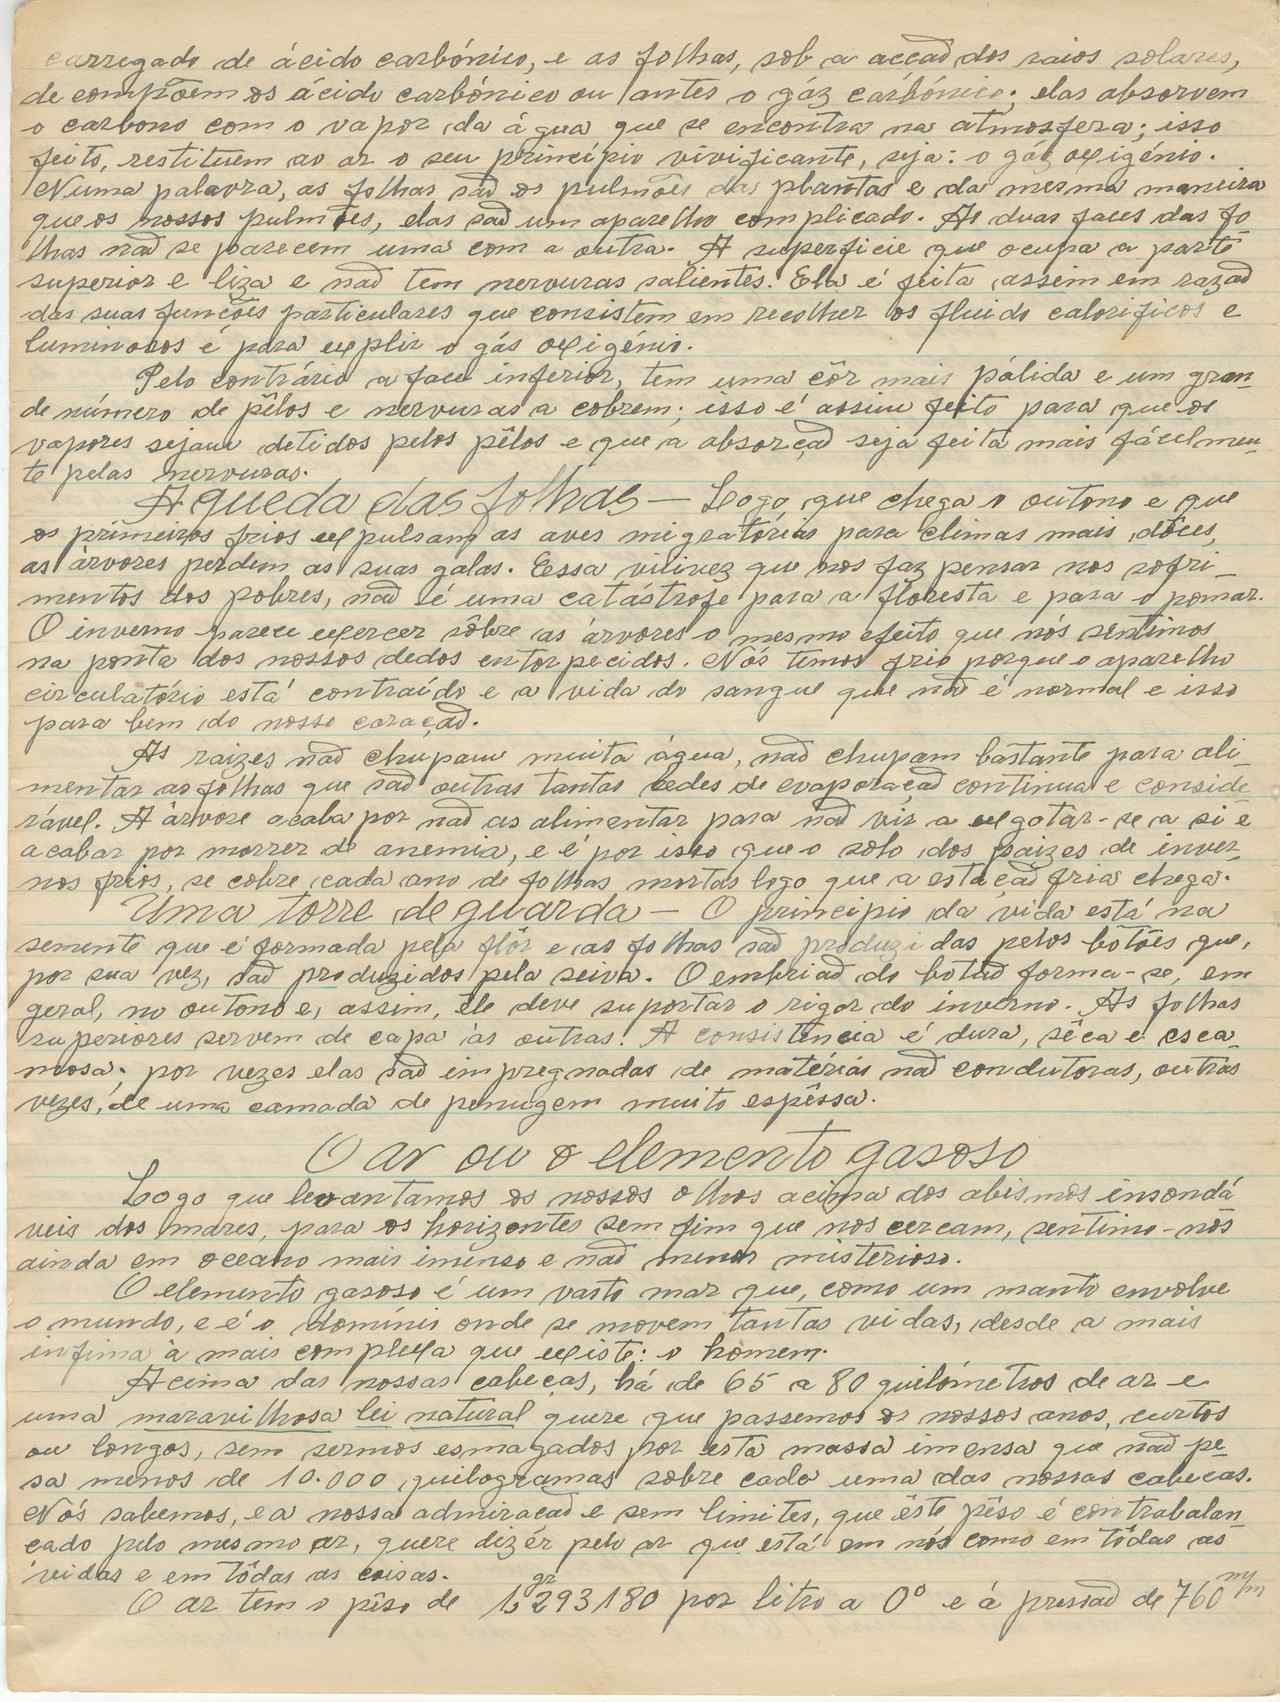 carregado de ácido carbónico, e as folhas, sob a acção dos raios solares,
decompõem os ácido carbónico ou antes o gáz carbónico; elas absorvem
o carbono com o vapor da água que se encontra na atmosfera; isso
feito, restituem ao ar o seu princípio vivificante, seja: o gáz oxigénio.
Numa palavra, as folhas são os pulmões das plantas e da mesma maneira
que os nossos pulmões, elas são um aparelho complicado. As duas faces das fo
lhas não se parecem uma com a outra. A superfície que ocupa a parte
superior e liza e não tem nervuras salientes. Ela é feita assim em razão
das suas funções particulares que consistem em recolher os fluido calorificos e
luminosos é para explir o gás oxigénio.
Pelo contrário a face inferior, tem uma côr mais pálida e um gran-
de número de pêlos e nervuras a cobrem; isso é assim feito para que os
vapores sejam detidos pelos pêlos e que a absorção seja feita mais fácilmen-
te pelas nervuras.
A queda das folhas — Logo que chega o outono e que
os primeiros frios expulsam as aves migratórias para climas mais dôces,
as árvores perdem as suas galas. Essa viuvez que nos faz pensar nos sofri-
mentos dos pobres, não é uma catástrofe para a floresta e para o pomar.
O inverno parece exercer sôbre as árvores o mesmo efeito que nós sentimos
na ponta dos nossos dedos entorpecidos. Nós temos frio porque o aparelho
circulatório está contraído e a vida do sangue que não é normal e isso
para bem do nosso coração.
As raizes não chupam muita água, não chupam bastante para ali-
mentar as folhas que são outras tantas sedes de evaporação continua e conside-
rável. A árvore acaba por não as alimentar para não vir a exgotar-se a si e
acabar por morrer de anemia, e é por isso que o solo dos paizes de inver-
nos frios, se cobre cada ano de folhas mortas logo que a estação fria chega.
Uma torre de guarda — O principio da vida está na
semente que é formada pela flôr e as folhas são produzidas pelos botões que,
por sua vez, são produzidos pela seiva. O embrião do botão forma-se, em
geral, no outono e, assim, êle deve suportar o rigor do inverno. As folhas
superiores servem de capa às outras. A consistência é dura, sêca e esca-
mosa; por vezes elas são impregnadas de matérias não condutoras, outras
vezes, de uma camada de penugem muito espêssa.
O ar ou o elemento gasoso
Logo que levantamos os nossos olhos acima dos abismos insondá
veis dos mares, para os horizontes sem fim que nos cercam, sentimo-nos
ainda em oceano mais imenso e não menos misterioso.
O elemento gasoso é um vasto mar que, como um manto envolve
o mundo, e é o domínio onde se movem tantas vidas, desde a mais
infima à mais complexa que existe: o hômem.
Acima das nossas cabeças, há de 65 a 80 quilómetros de ar e
uma maravilhosa lei natural quere que passemos os nossos anos, curtos
ou longos, sem sermos esmagados por esta massa imensa que não pe-
sa menos de 10.000 quilogramas sobre cada uma das nossas cabeças.
Nós sabemos, e a nossa admiração e sem limites, que êste pêso é contrabalan-
çado pelo mesmo ar, quere dizér pelo ar que está em nós como em tôdas as
vidas e em tôdas as coisas.
O ar tem o pêso de 1,gr 293180 por litro a 0º e á pressão de 760 m/m